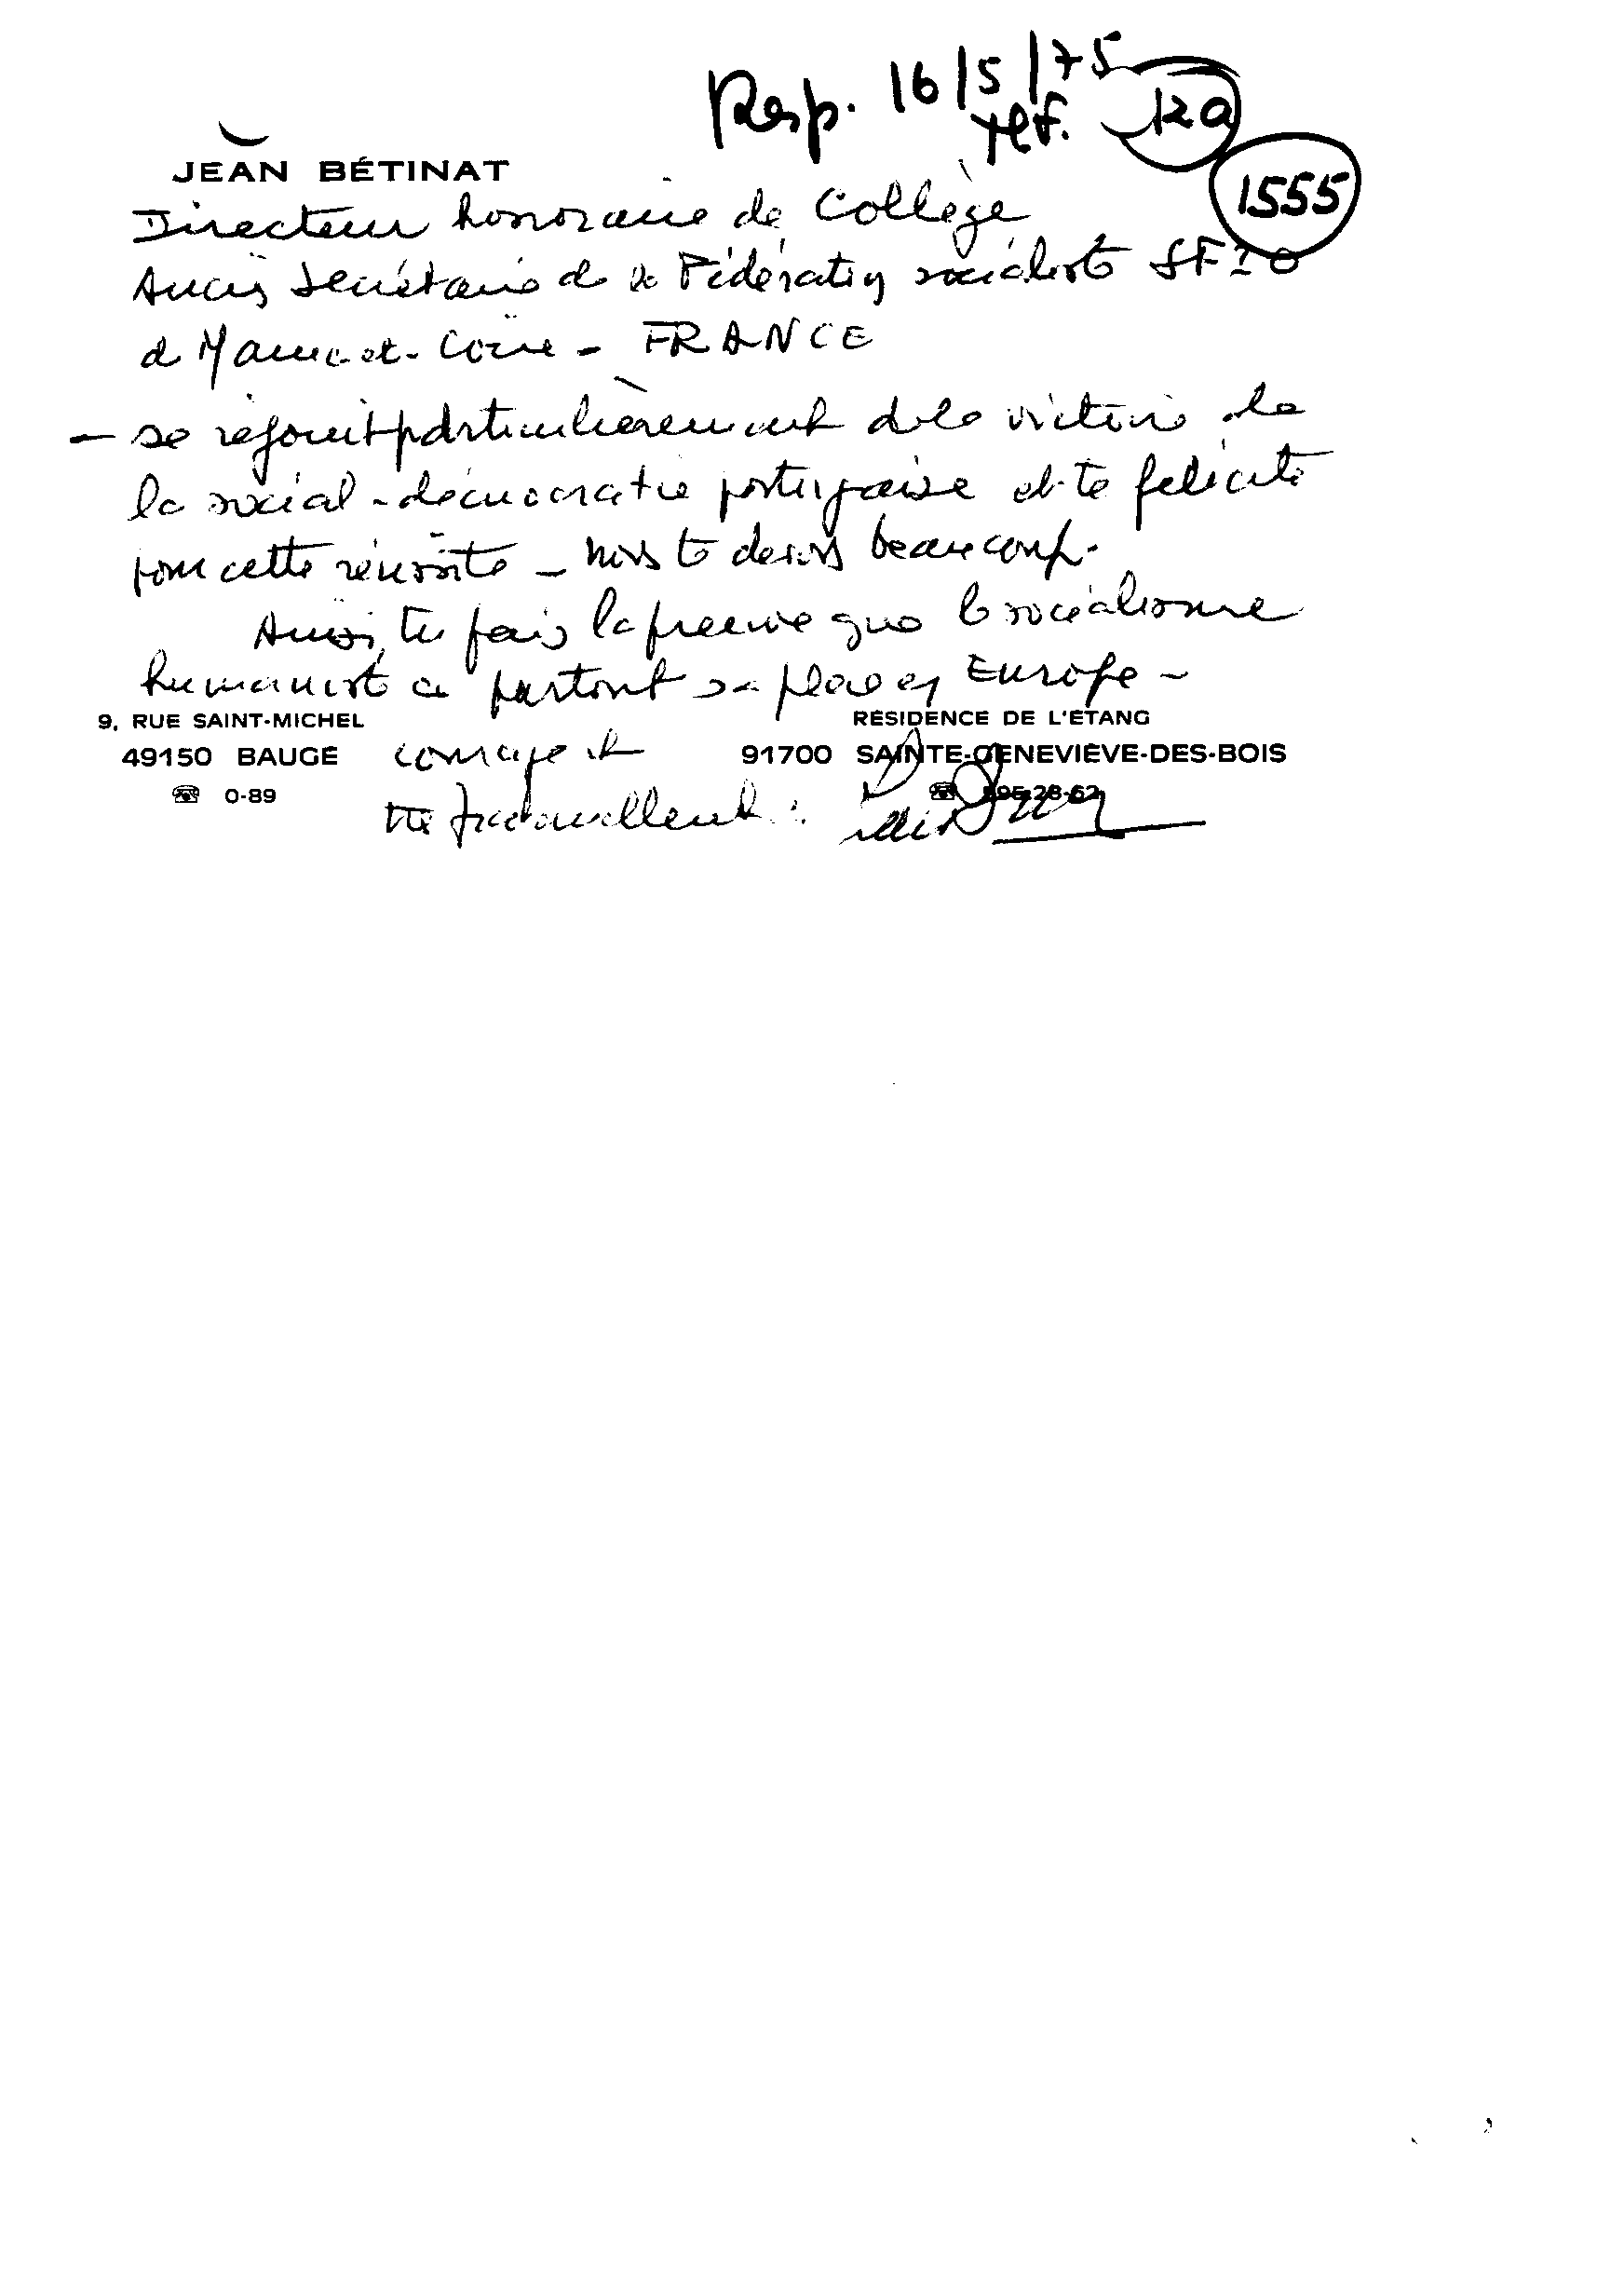 Resp. 16/5/75
ref.
12a
1555
JEAN BÉTINAT
Directeur honoraire de Collège
Ancien Secrétaire de la Fédération socialiste SFIO
de Maine-et-Loire - FRANCE
- se réjouit particulièrement de la victoire de
la social-démocratie portugaise et te félicite
pour cette réussite - nous te devons beaucoup.
Ainsi, tu fais la preuve que le socialisme
humaniste a partout sa place en Europe -
9, RUE SAINT-MICHEL
RÉSIDENCE DE L'ÉTANG
49150 BAUGÉ
courage et
91700 SAINTE-GENEVIÈVE-DES-BOIS
☎ 0-89
☎ 895-28-62
très fraternellement :